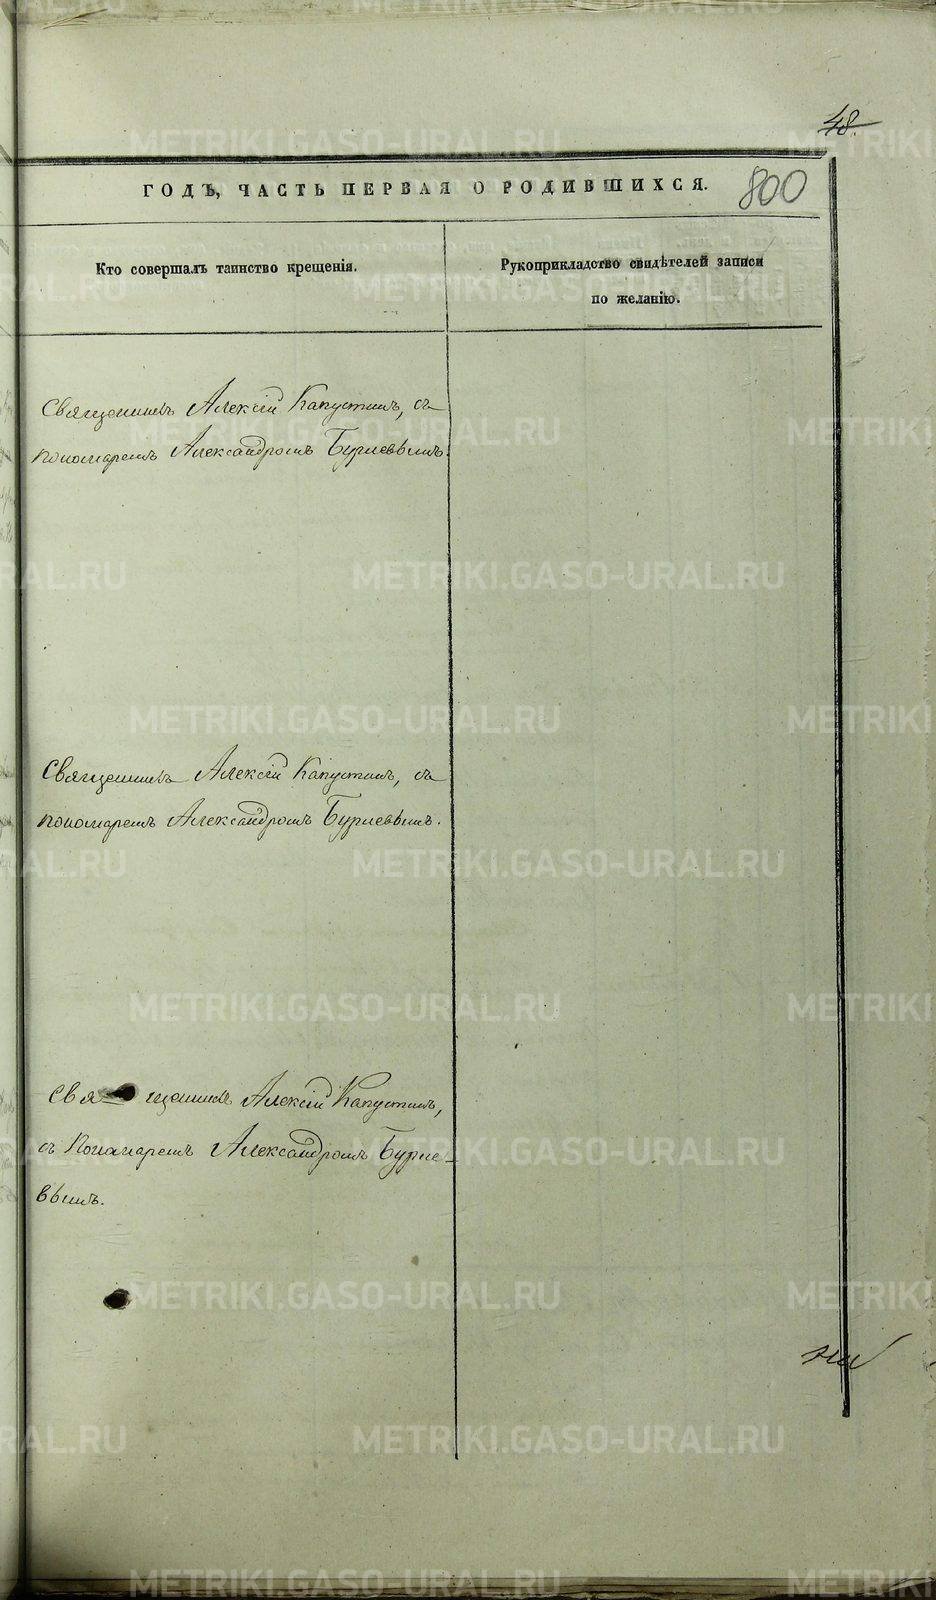 48.
ГОДЪ, ЧАСТЬ ПЕРВАЯ О РОДИВШИХСЯ.
800
Кто совершалъ таинство крещенія.
Рукоприкладство свидѣтелей записи
по желанію.
Священникъ Алексій Капустинъ, съ
пономаремъ Александромъ Бурневымъ.
Священникъ Алексій Капустинъ, съ
пономаремъ Александромъ Бурневымъ.
Священникъ Алексій Капустинъ,
съ Пономаремъ Александромъ Бурне-
вымъ.
METRIKI.GASO-URAL.RU